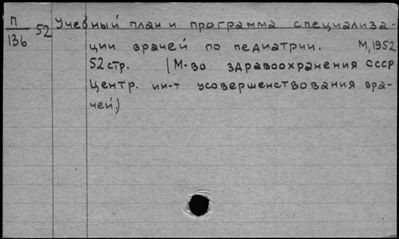 П/136 52 Учебный план и программа специализа-
ции врачей по педиатрии. М, 1952
52 стр. (М-во здравоохранения СССР
Центр. ин-т усовершенствования вра-
чей.)